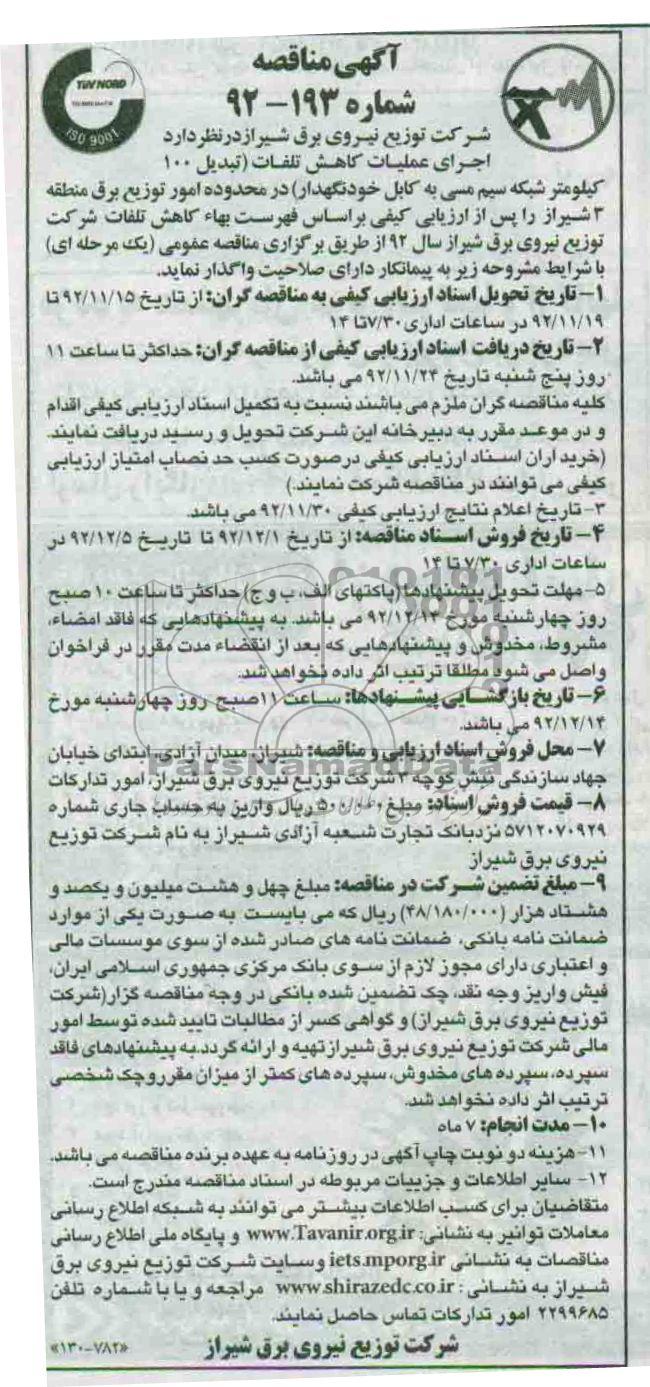 آگهی مناقصه
شماره ۱۹۳-۹۲
TUV NORD
ISO 9001
شرکت توزیع نیروی برق شیراز در نظر دارد
اجرای عملیات کاهش تلفات (تبدیل ۱۰۰
کیلومتر شبکه سیم مسی به کابل خودنگهدار) در محدوده امور توزیع برق منطقه
۳ شیراز را پس از ارزیابی کیفی بر اساس فهرست بهاء کاهش تلفات شرکت
توزیع نیروی برق شیراز سال ۹۲ از طریق برگزاری مناقصه عمومی (یک مرحله ای)
با شرایط مشروحه زیر به پیمانکار دارای صلاحیت واگذار نماید.
۱- تاریخ تحویل اسناد ارزیابی کیفی به مناقصه گران: از تاریخ ۹۲/۱۱/۱۵ تا
۹۲/۱۱/۱۹ در ساعات اداری ۷/۳۰ تا ۱۴
۲- تاریخ دریافت اسناد ارزیابی کیفی از مناقصه گران: حداکثر تا ساعت ۱۱
روز پنج شنبه تاریخ ۹۲/۱۱/۲۴ می باشد.
کلیه مناقصه گران ملزم می باشند نسبت به تکمیل اسناد ارزیابی کیفی اقدام
و در موعد مقرر به دبیرخانه این شرکت تحویل و رسید دریافت نمایند.
(خریداران اسناد ارزیابی کیفی در صورت کسب حد نصاب امتیاز ارزیابی
کیفی می توانند در مناقصه شرکت نمایند.)
۳- تاریخ اعلام نتایج ارزیابی کیفی ۹۲/۱۱/۳۰ می باشد.
۴- تاریخ فروش اسناد مناقصه: از تاریخ ۹۲/۱۲/۱ تا تاریخ ۹۲/۱۲/۵ در
ساعات اداری ۷/۳۰ تا ۱۴
۵- مهلت تحویل پیشنهادها (پاکتهای الف، ب و ج) حداکثر تا ساعت ۱۰ صبح
روز چهارشنبه مورخ ۹۲/۱۲/۱۴ می باشد. به پیشنهادهایی که فاقد امضاء،
مشروط، مخدوش و پیشنهادهایی که بعد از انقضاء مدت مقرر در فراخوان
واصل می شود مطلقا ترتیب اثر داده نخواهد شد.
۶- تاریخ بازگشایی پیشنهادها: ساعت ۱۱ صبح روز چهارشنبه مورخ
۹۲/۱۲/۱۴ می باشد.
۷- محل فروش اسناد ارزیابی و مناقصه: شیراز، میدان آزادی، ابتدای خیابان
جهاد سازندگی نبش کوچه ۳ شرکت توزیع نیروی برق شیراز، امور تدارکات
ParsNamadData
۸- قیمت فروش اسناد: مبلغ ۵۰۰/۰۰۰ ریال واریز به حساب جاری شماره
۵۷۱۲۰۷۰۹۲۹ نزد بانک تجارت شعبه آزادی شیراز به نام شرکت توزیع
نیروی برق شیراز
۹- مبلغ تضمین شرکت در مناقصه: مبلغ چهل و هشت میلیون و یکصد و
هشتاد هزار (۴۸/۱۸۰/۰۰۰) ریال که می بایست به صورت یکی از موارد
ضمانت نامه بانکی، ضمانت نامه های صادر شده از سوی موسسات مالی
و اعتباری دارای مجوز لازم از سوی بانک مرکزی جمهوری اسلامی ایران،
فیش واریز وجه نقد، چک تضمین شده بانکی در وجه مناقصه گزار (شرکت
توزیع نیروی برق شیراز) و گواهی کسر از مطالبات تایید شده توسط امور
مالی شرکت توزیع نیروی برق شیراز تهیه و ارائه گردد. به پیشنهادهای فاقد
سپرده، سپرده های مخدوش، سپرده های کمتر از میزان مقرر و چک شخصی
ترتیب اثر داده نخواهد شد.
۱۰- مدت انجام: ۷ ماه
۱۱- هزینه دو نوبت چاپ آگهی در روزنامه به عهده برنده مناقصه می باشد.
۱۲- سایر اطلاعات و جزییات مربوطه در اسناد مناقصه مندرج است.
متقاضیان برای کسب اطلاعات بیشتر می توانند به شبکه اطلاع رسانی
معاملات توانیر به نشانی: www.Tavanir.org.ir و پایگاه ملی اطلاع رسانی
مناقصات به نشانی iets.mporg.ir و سایت شرکت توزیع نیروی برق
شیراز به نشانی: www.shirazedc.co.ir مراجعه و یا با شماره تلفن
۲۲۹۹۶۸۵ امور تدارکات تماس حاصل نمایند.
شرکت توزیع نیروی برق شیراز
«۱۳۰-۷۸۲»